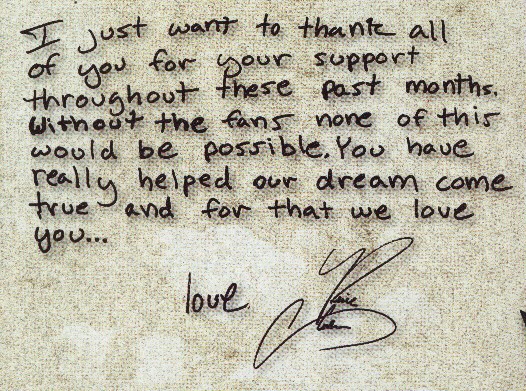 I just want to thank all
of you for your support
throughout these past months.
Without the fans none of this
would be possible. You have
really helped our dream come
true and for that we love
you...
love